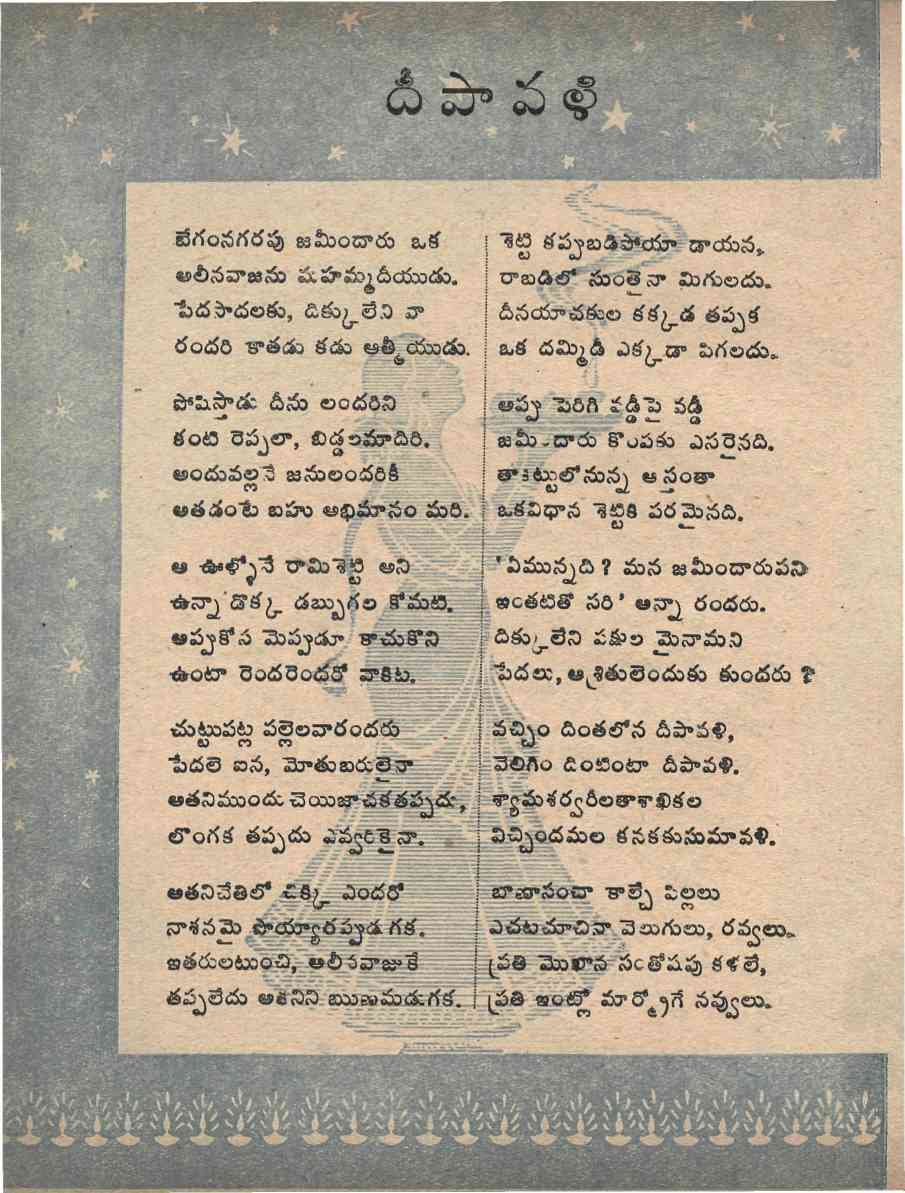 దీపావళి
బేగంనగరపు జమీందారు ఒక
అలీనవాజను మహమ్మదీయుడు.
పేదసాదలకు, దిక్కులేని వా
రందరి కాతడు కడు ఆత్మీయుడు.
పోషిస్తాడు దీను లందరిని
కంటి రెప్పలా, బిడ్డలమాదిరి.
అందువల్లనే జనులందరికీ
అతడంటే బహు అభిమానం మరి.
ఆ ఊళ్ళోనే రామిశెట్టి అని
ఉన్నాడొక్క డబ్బుగల కోమటి.
అప్పుకోస మెప్పుడూ కాచుకొని
ఉంటా రెందరెందరో వాకిట.
చుట్టుపట్ల పల్లెలవారందరు
పేదలె ఐన, మోతుబరులైనా
అతనిముందు చెయిజాచకతప్పదు,
లొంగక తప్పదు ఎవ్వరికైనా.
అతనిచేతిలో చిక్కి ఎందరో
నాశనమై పొయ్యారప్పుడగక.
ఇతరులటుంచి, అలీనవాజుకే
తప్పలేదు అతనిని ఋణమడుగక.
శెట్టి కప్పుబడిపోయా డాయన,
రాబడిలో సుంతైనా మిగులదు.
దీనయాచకుల కక్కడ తప్పక
ఒక దమ్మిడీ ఎక్కడా పిగలదు.
అప్పు పెరిగి వడ్డీపై వడ్డీ
జమీందారు కొంపకు ఎసరైనది.
తాకట్టులోనున్న ఆస్తంతా
ఒకవిధాన శెట్టికి పరమైనది.
'ఏమున్నది? మన జమీందారుపని
ఇంతటితో సరి' అన్నా రందరు.
దిక్కులేని పక్షుల మైనామని
పేదలు, ఆశ్రితులెందుకు కుందరు?
వచ్చిం దింతలోన దీపావళి,
వెలిగిం దింటింటా దీపావళి.
శ్యామశర్వరీలతాశాఖికల
విచ్చిందమల కనకకుసుమావళి.
బాణాసంచా కాల్చే పిల్లలు
ఎచటచూచినా వెలుగులు, రవ్వలు.
ప్రతి మొఖాన సంతోషపు కళలే,
ప్రతి ఇంట్లో మార్మ్రోగే నవ్వులు.